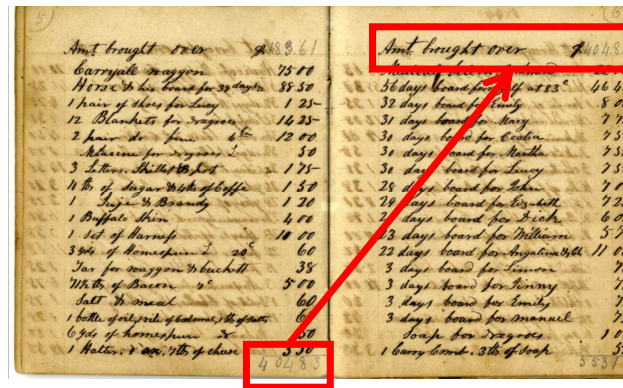 5)
Amt brought over $183.61
Carryall waggon 75 00
Horse & his board for 39 days 88 50
1 pair of shoes for Lucy 1 25
12 Blankets for negroes 14 25
2 pair do fine 12 00
for negroes 50
3 1 75
of sugar & of Coffe 1 50
1 & Brandy 1 20
1 Buffalo Skin 4 00
1 set of Harness 10 00
3 yds of Homespun 20c 60
Tar for waggon & buckett 38
of Bacon 5 00
Salt & meal 60
1 bottle of oil,
6 yds of homespun 50
1 Halter, of cheese 3 50
404 83
(6
Amt brought over $404.8
56 days board for self at 83c 46 4
32 days board for Emily 8 0
31 days board for Mary 7 7
30 days board for Cealia 7 5
30 days board for Martha 7 5
30 days board for Lucey 7 5
28 days board for John 7 0
29 days board for Elizabeth 7 2
days board for Dick 6 0
23 days board for William 5 7
22 days board for Angalina & Ch 11 0
3 days board for Simon 7
3 days board for Jinny 7
3 days board for Emily 7
3 days board for manuel 7
Soap for negroes 1 0
1 Curry Comb. 3 lb of Soap 5
553 7